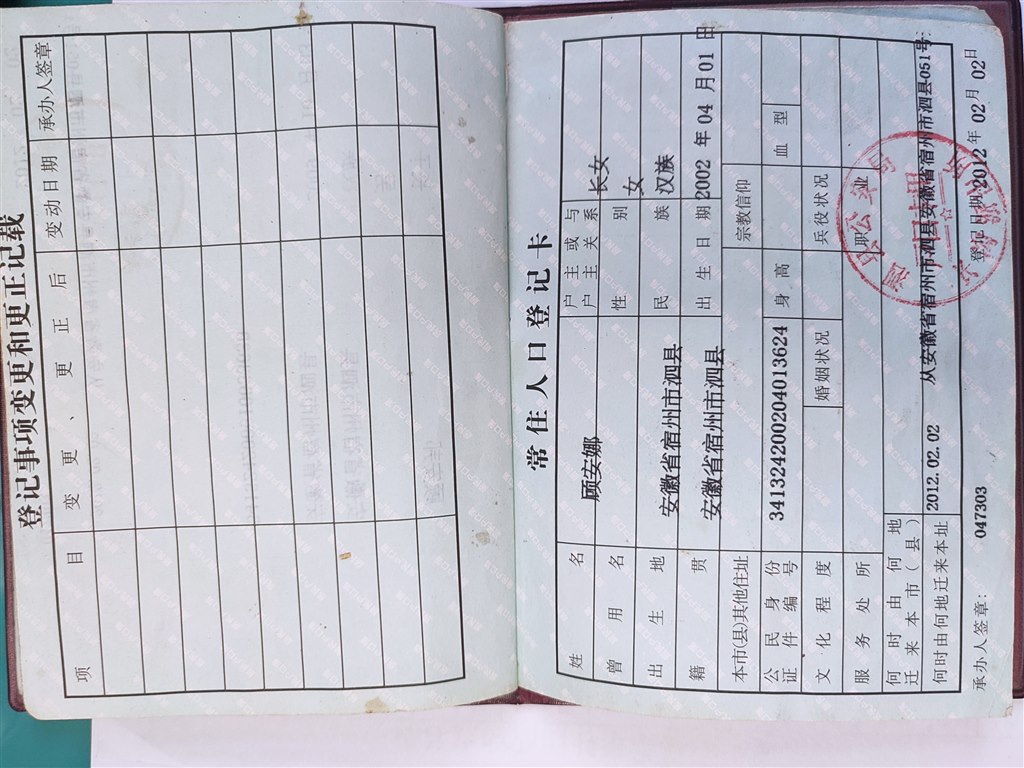 登记事项变更和更正记载
项 目 变 更 、 更 正 后 变动日期 承办人签章
常住人口登记卡
姓 名 顾安娜 户主或与户主关系 长女
曾 用 名 性 别 女
出 生 地 安徽省宿州市泗县 民 族 汉族
籍 贯 安徽省宿州市泗县 出 生 日 期 2002 年 04 月 01 日
本市(县)其他住址 宗教信仰
公民身份证件编号 341324200204013624 身 高 血 型
文 化 程 度 婚姻状况 兵役状况
服 务 处 所 职 业
何时由何地迁来本市(县)
何时由何地迁来本址 2012.02.02 从安徽省宿州市泗县安徽省宿州市泗县051号
承办人签章: 047303 登记日期: 2012 年 02 月 02 日